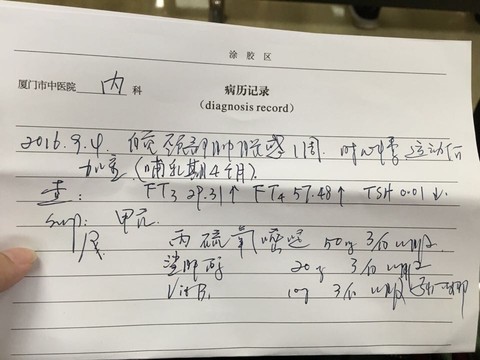 涂胶区
厦门市中医院 内 科 病历记录
(diagnosis record)
2016.9.4. 自觉颈部肿胀感1周. 时心悸 运动后
加重 (哺乳期4个月).
查: FT3 29.31↑ FT4 57.48↑ TSH 0.01↓.
imp: 甲亢
丙硫氧嘧啶 50g 3
鲨肝醇 20g 3
VitB1 10g 3